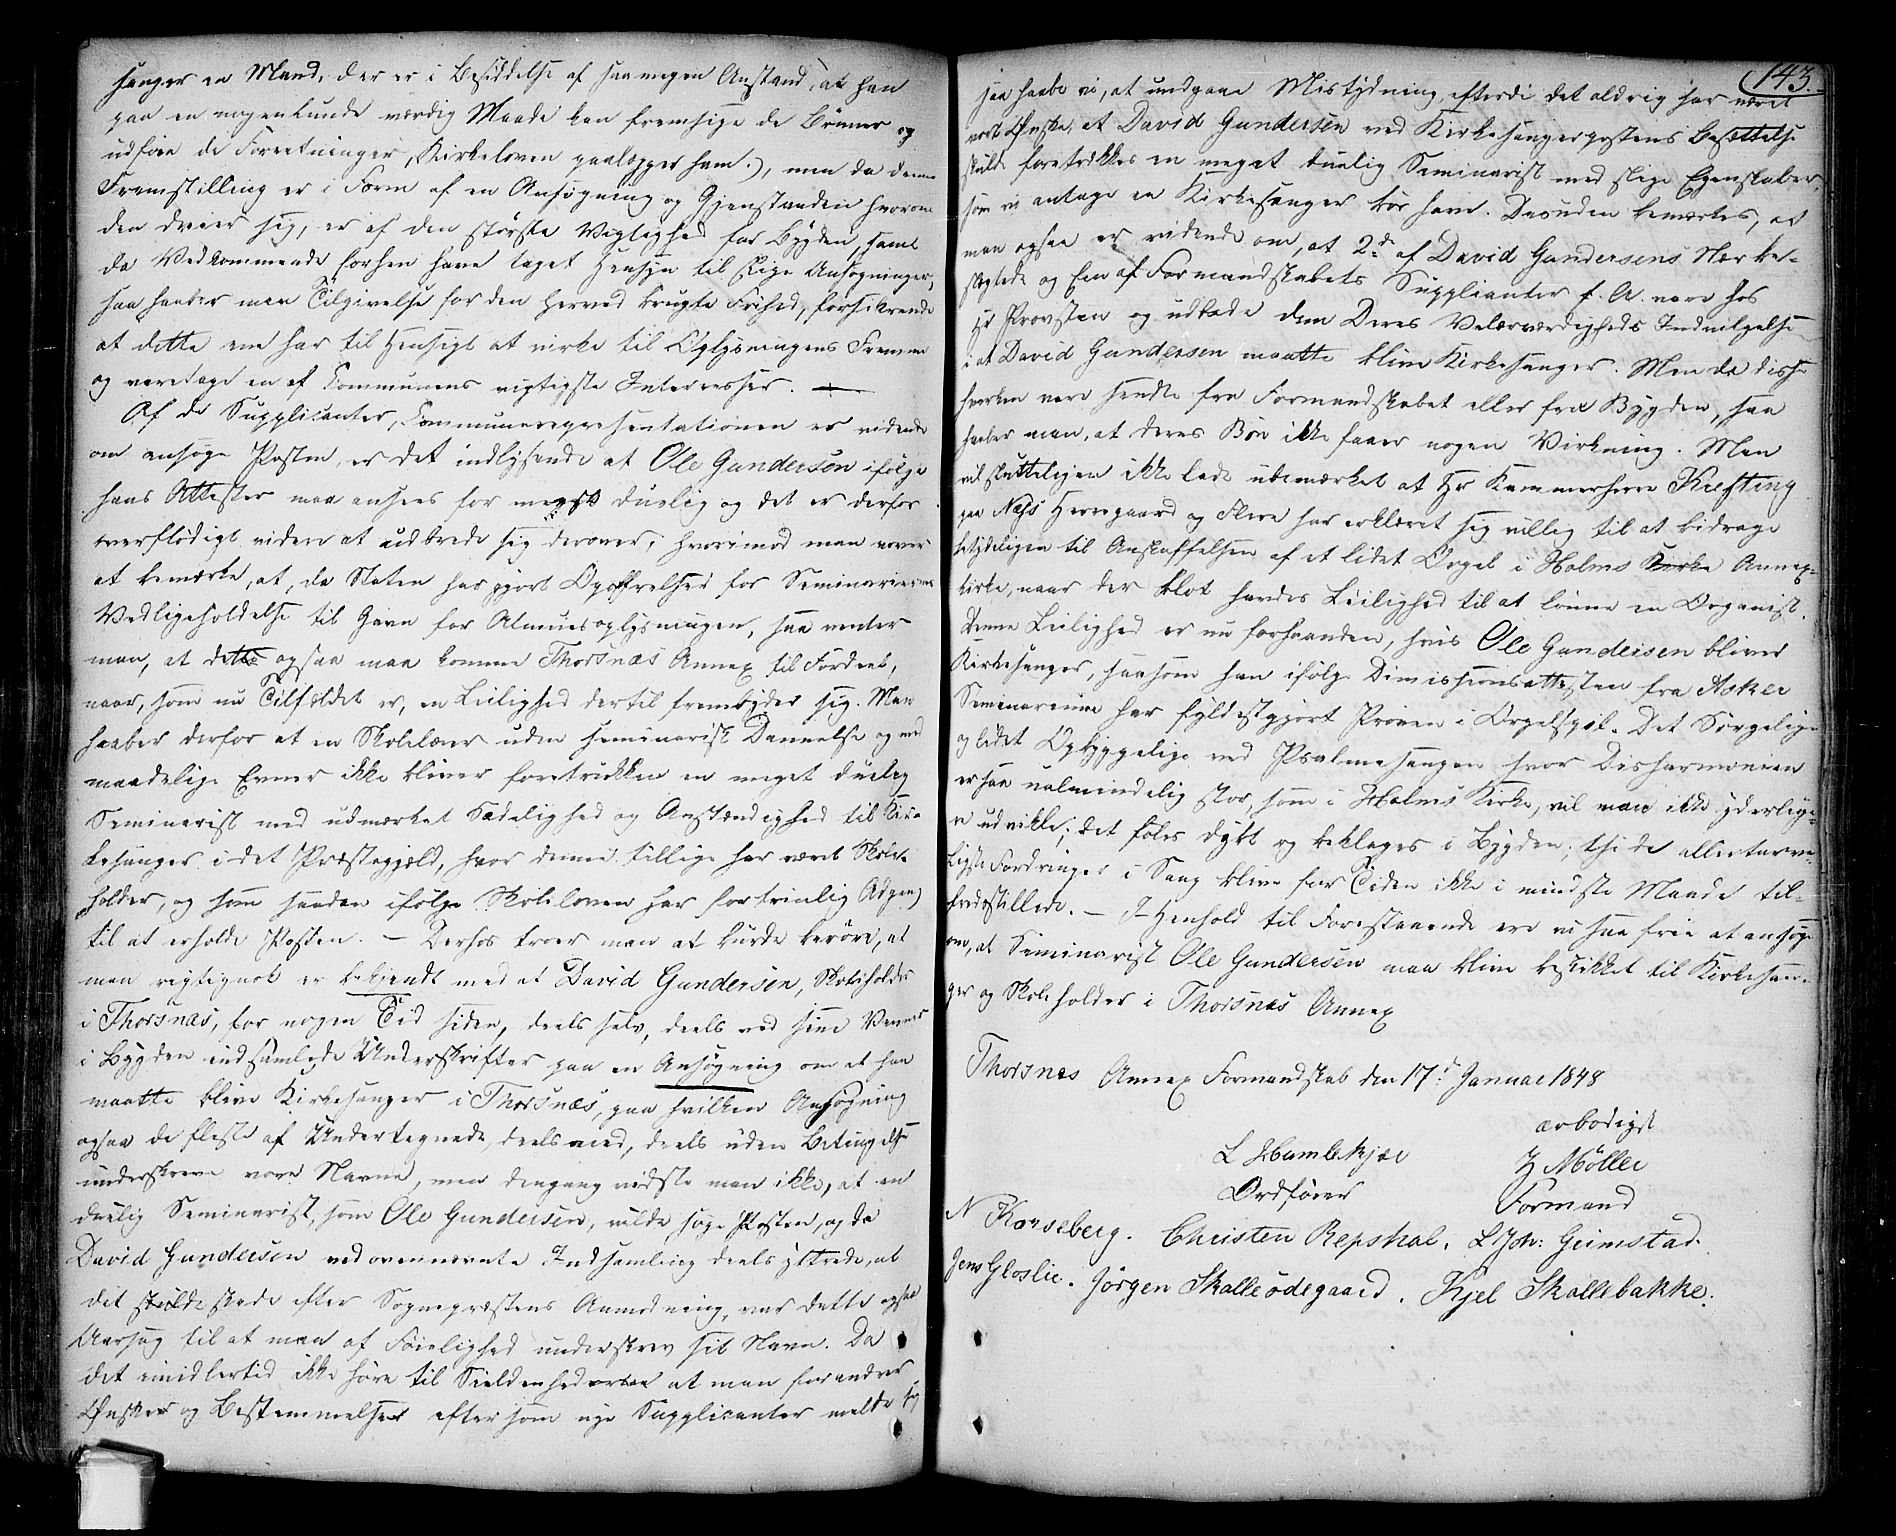 sanger en Mand, der er i Besiddelse af saa megen Anstand, at han
paa en nogenlunde værdig Maade kan fremsige de Bönner og
udföre de Forretninger, Kirkeloven paalægger ham.), men da denne
Fremstilling er i Form af en Ansøgning og Gjenstanden hvorom
den dreier sig, er af den störste Vigtighed for Bygden, samt
da Vedkommende forhen have taget Hensyn til slige Ansøgninger,
saa haaber man Tilgivelse for den herved brugte Frihed, forsikrende
at dette en har til Hensigt at virke til Oplysningens Fremme
og varetage en af Communens vigtigste Interesser. —
Af de Supplicanter, Communerepresentationen er vidende
om ansøge Posten, er det indlysende at Ole Gundersen ifölge
hans Attester maa ansees for meget duelig og det er derfor
overflödigt videre at udbrede sig derover, hvorimod man vover
at bemærke, at, da Staten har gjort Opoffrelser for Seminariernes
Vedligeholdelse til Gavn for Almuesoplysningen, saa venter
man, at dette ogsaa maa komme Thorsnæs Annex til Fordeel,
naar, som nu Tilfældet er, en Leilighed dertil frembyder sig. Man
haaber derfor at en Skolelærer uden seminarist Dannelse og med
maadelige Evner ikke bliver foretrukken en meget duelig
Seminarist med udmærket Sædelighed og Anstændighed til Kir-
kesanger i det Præstegjeld, hvor denne tillige har været Skole-
holder, og som saadan ifölge Skoleloven har fortrinlig Adgang
til at erholde Posten. — Derhos troer man at burde beröre, at
man rigtignok er bekjendt med at David Gundersen, Skoleholder
i Thorsnæs, for nogen Tid siden, deels selv, deels ved sine Venner
i Bygden indsamlede Underskrifter paa en Ansøgning om at han
maatte blive Kirkesanger i Thorsnæs, paa hvilken Ansøgning
ogsaa de fleste af Undertegnede, deels med, deels uden Betingelse
underskreve vore Navne, men dengang vidste man ikke, at en
duelig Seminarist, som Ole Gundersen, vilde søge Posten, og da
David Gundersen ved ovennævnte Indsamling deels yttrede, at
det skulde skede efter Sognepræstens Anmodning, var dette ogsaa
Aarsag til at man af Föielighed underskrev sit Navn. Da
det imidlertid ikke hörer til Sieldenheden at man forandrer
Ønsker og Bestemmelser eftersom nye Supplicanter melde sig
143.
saa haabe vi, at undgaae Mistydning, efterdi det aldrig har været
vort Ønske, at David Gundersen ved Kirkesangerpostens Besættelse
skulde foretrækkes en meget duelig Seminarist med slige Egenskaber,
som vi antage en Kirkesanger bör have. Desuden bemærkes, at
man ogsaa er vidende om, at 2de af David Gundersens Nærbe-
slægtede og Een af Formandskabets Supplianter f. A. vare hos
Hr Provsten og udbade dem Deres Velærværdigheds Indvilgelse
i at David Gundersen maatte blive Kirkesanger. Men da disse
hverken vare sendte fra Formandskabet eller fra Bygden, saa
haaber man, at deres Bön ikke faaer nogen Virkning. Man
vil sluttelijen ikke lade ubemærket at Hr Kammerherre Kiefting
paa Næs Herregaard og Flere har erklæret sig villig til at bidrage
betydeligen til Anskaffelsen af et lidet Orgel i Holms Kirke Annex-
kirke, naar der blot havdes Leilighed til at lönne en Organist.
Denne Leilighed er nu forhaanden, hvis Ole Gundersen bliver
Kirkesanger, saasom han ifölge Dimissionsattesten fra Asker
Seminarium har fyldestgjort Pröven i Orgelspil. Det Sörgelige
og lidet Opbyggelige ved Psalmesangen hvor Disharmonien
er saa ualmindelig stor, som i Holms Kirke, vil man ikke yderlige-
re udvikle; det föles dybt og beklages i Bygden; thi de allertarve-
ligste Fordringer i Sang blive for Tiden ikke i mindste Maade til-
fredsstillede. — I Henhold til Forestaaende ere vi saa frie at ansøge
om, at Seminarist Ole Gundersen maa blive beskikket til Kirkesan-
ger og Skoleholder i Thorsnæs Annex
Thorsnes Annex Formandskab den 17d Januar 1848
ærbödigst
L Humlekjær J Möller
Ordförer Formand
N Korseberg. Christen Repshal. L Joh: Grimstad.
Jens Gloslie. Jörgen Skalleödegaard. Kjel Skallebakke.